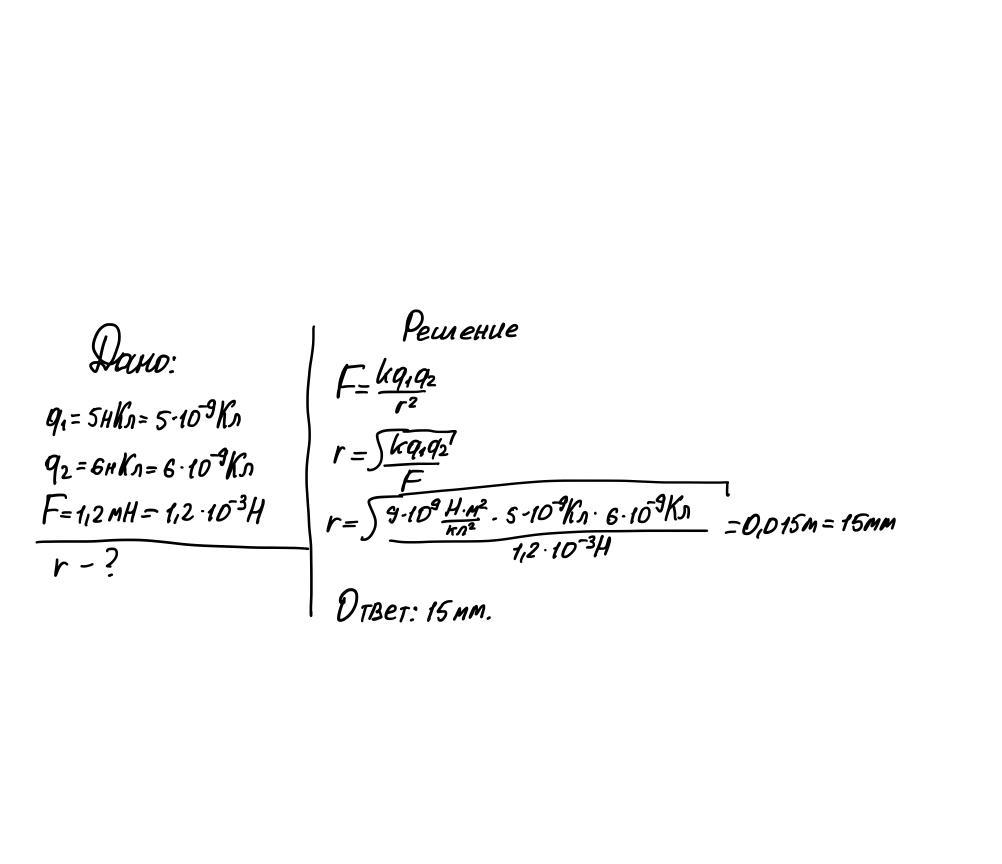 Дано:
q₁ = 5нКл = 5·10⁻⁹Кл
q₂ = 6нКл = 6·10⁻⁹Кл
F = 1,2мН = 1,2·10⁻³Н
r - ?
Решение
F = kq₁q₂/r²
r = √(kq₁q₂/F)
r = √((9·10⁹ Н·м²/кл² · 5·10⁻⁹Кл · 6·10⁻⁹Кл)/(1,2·10⁻³Н)) = 0,015м = 15мм
Ответ: 15 мм.